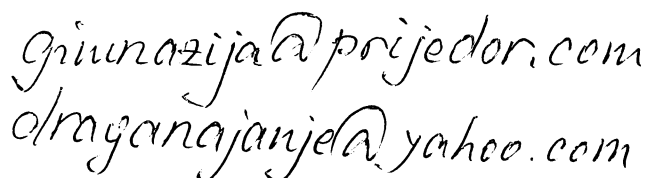 gimnazija@prijedor.com
draganajanje@yahoo.com